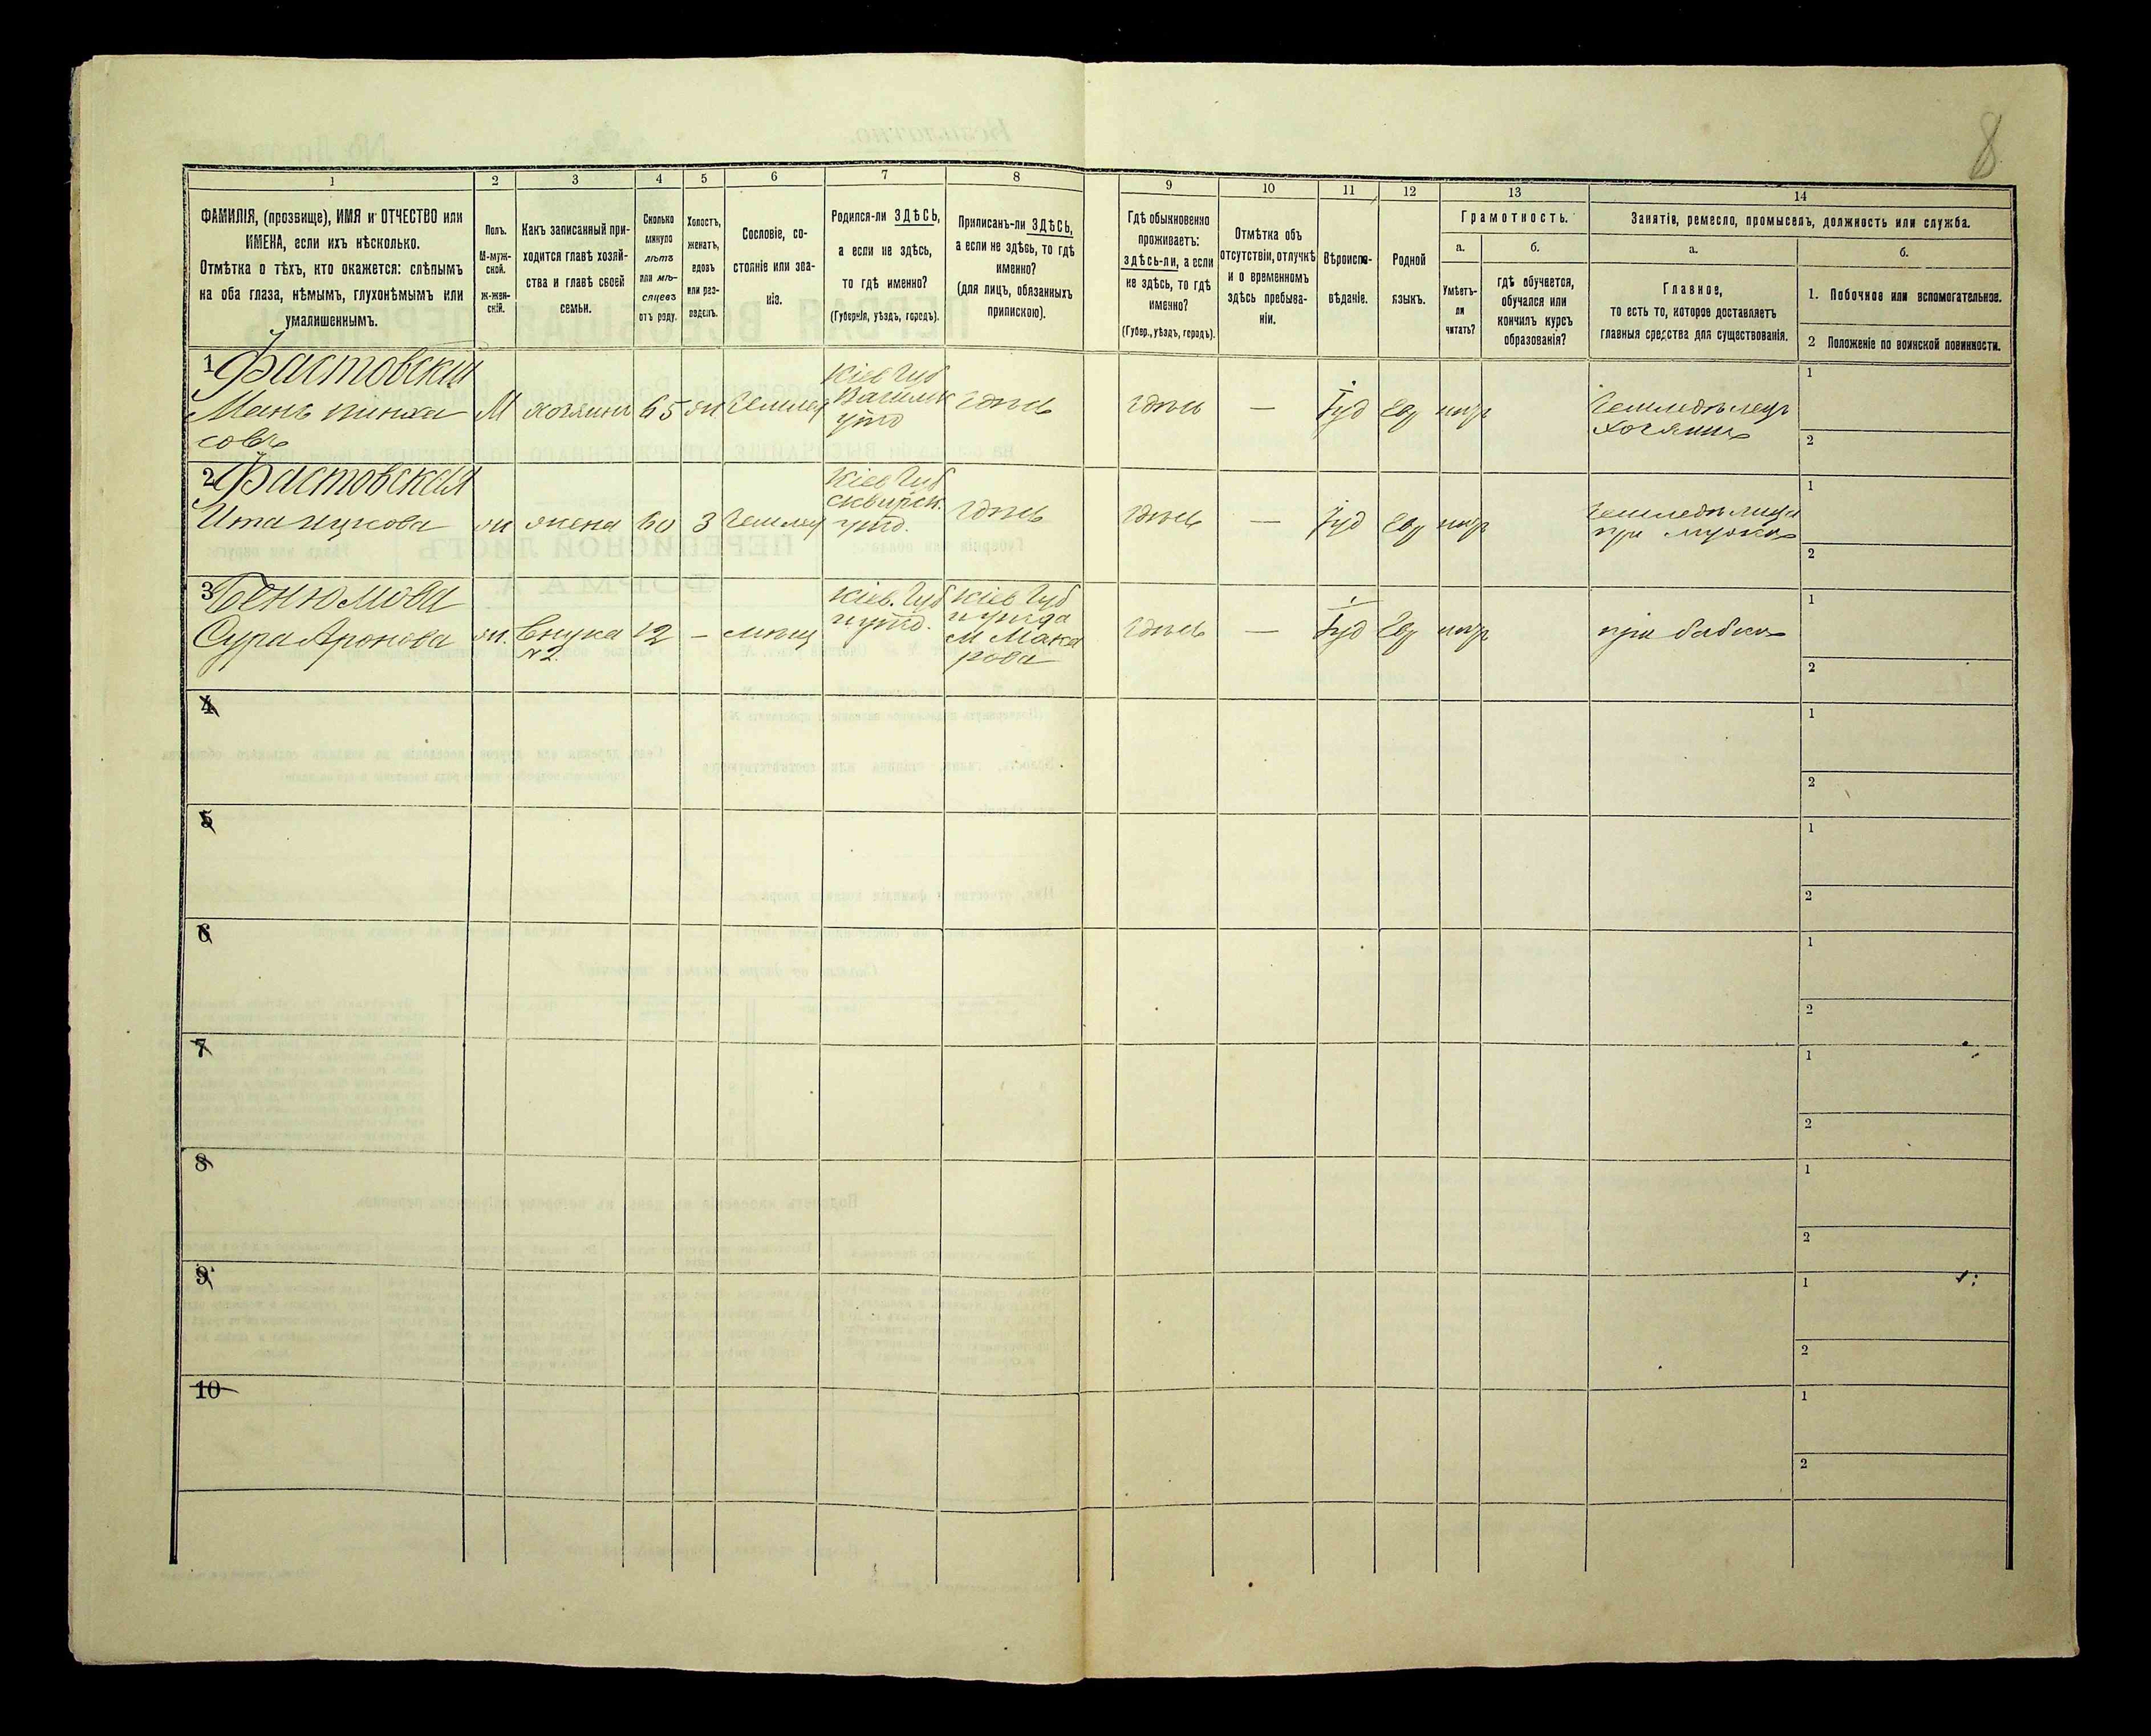 8
1 2 3 4 5 6 7 8 9 10 11 12 13 14
ФАМИЛІЯ, (прозвище), ИМЯ и ОТЧЕСТВО или
ИМЕНА, если ихъ нѣсколько.
Отмѣтка о тѣхъ, кто окажется: слѣпымъ
на оба глаза, нѣмымъ, глухонѣмымъ или
умалишеннымъ.
Полъ.
М-муж-
ской.
ж-жен-
скій.
Какъ записанный при-
ходится главѣ хозяй-
ства и главѣ своей
семьи.
Сколько
минуло
лѣтъ
или мѣ-
сяцевъ
отъ роду.
Холостъ,
женатъ,
вдовъ
или раз-
веденъ.
Сословіе, со-
стояніе или зва-
ніе.
Родился-ли ЗДѢСЬ,
а если не здѣсь,
то гдѣ именно?
(Губернія, уѣздъ, городъ).
Приписанъ-ли ЗДѢСЬ,
а если не здѣсь, то гдѣ
именно?
(для лицъ, обязанныхъ
припискою).
Гдѣ обыкновенно
проживаетъ:
здѣсь-ли, а если
не здѣсь, то гдѣ
именно?
(Губер., уѣздъ, городъ).
Отмѣтка объ
отсутствіи, отлучкѣ
и о временномъ
здѣсь пребыва-
ніи.
Вѣроиспо-
вѣданіе.
Родной
языкъ.
Грамотность.
а.
Умѣетъ-
ли
читать?
б.
гдѣ обучается,
обучался или
кончилъ курсъ
образованія?
Занятіе, ремесло, промыселъ, должность или служба.
а.
Главное,
то есть то, которое доставляетъ
главныя средства для существованія.
б.
1. Побочное или вспомогательное.
2 Положеніе по воинской повинности.
1 Фастовскій
Мань Пинха
совъ
М хозяинъ 65 жн Землед
Кіев Губ
Васильк
уѣзд
здѣсь
здѣсь — Іуд Евр нѣт
Земледѣлецъ
Хозяинъ
1
2
2 Фастовская
Ита Ицкова
жн жена 60 З Землед
Кіев Губ
Сквирск.
уѣзд.
здѣсь
здѣсь — Іуд Евр нѣт
при мужѣ
1
2
3
Сура Аронова
жн. внука 12 — мѣщ
№2
Кіев. Губ
и уѣзд.
Кіев Губ
и уѣзда
м Мака
рова
здѣсь — Іуд Евр нѣт
при бабкѣ
1
2
4
1
2
5
1
2
6
1
2
7
1
2
8
1
2
9
1
2
10
1
2